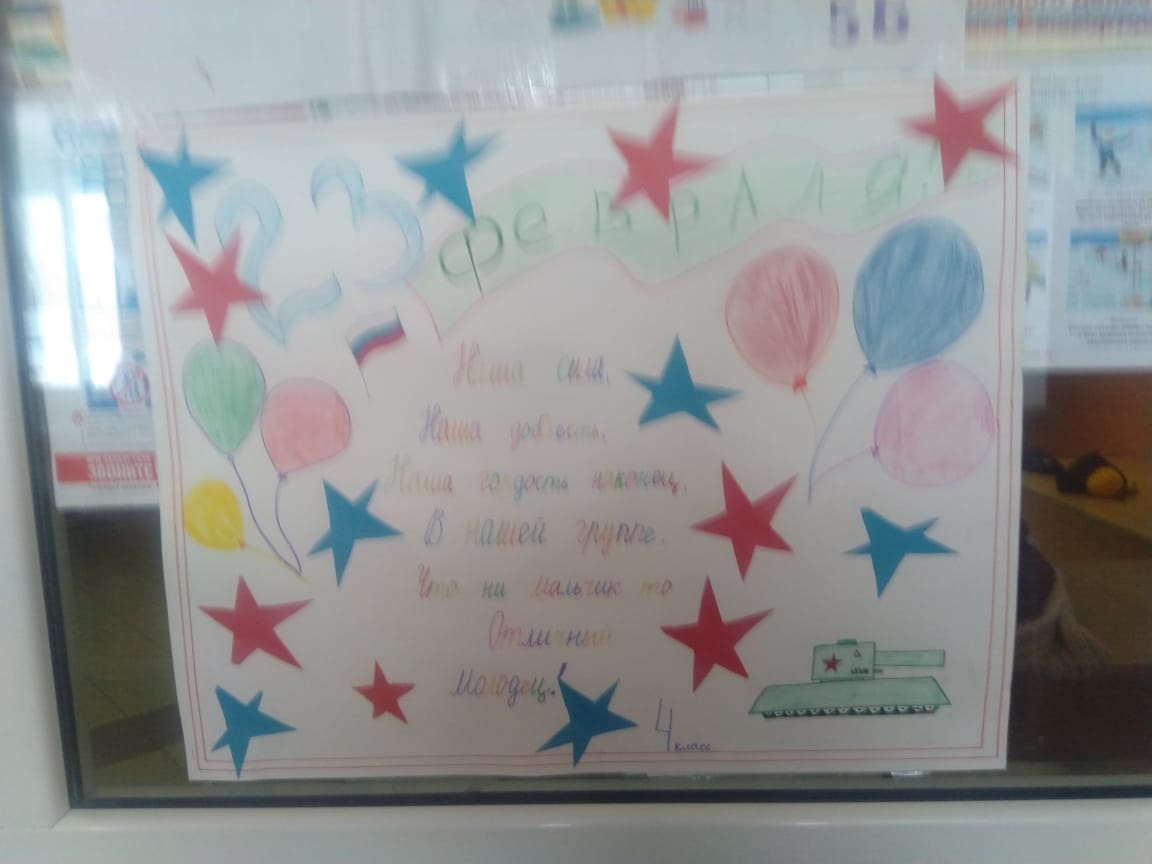 23 февраля!
Наша сила,
Наша доблесть,
Наша гордость наконец,
В нашей группе,
Что ни мальчик то
Отличный
Молодец!
4 класс
ЗВОНИТЕ
5 Б